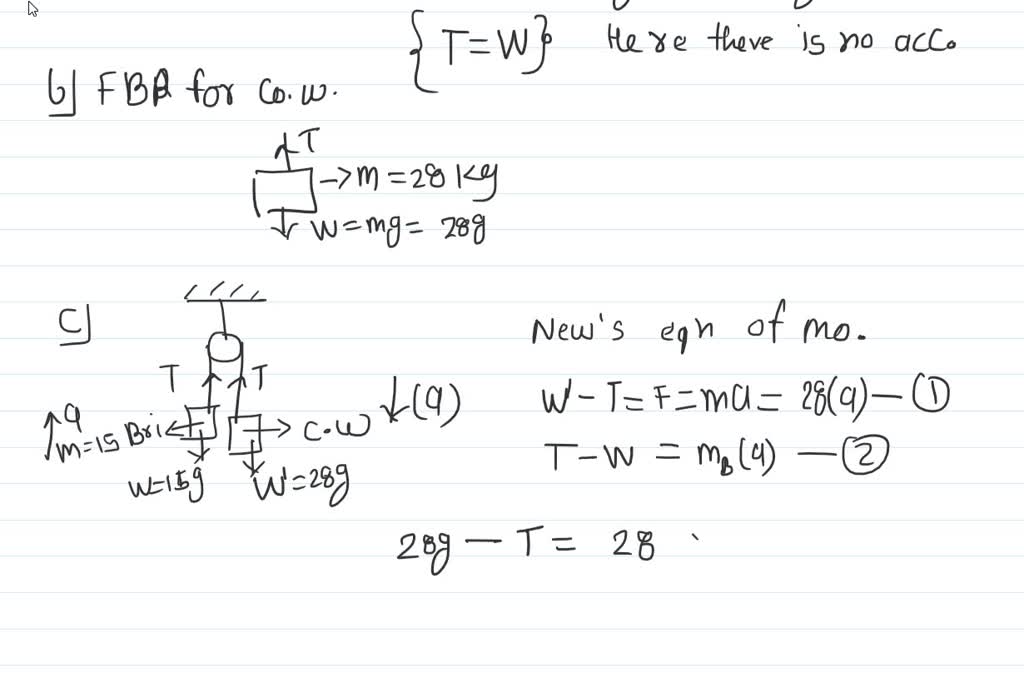 {T=W} Here there is no acc.
b] FBD for Co.w.
T
→ m = 28 Kg
W = mg = 28g
c]
New's eqn of mo.
T T
a
m=15 Bri ← → C.W ↓(a)
W' - T = F = ma = 28(a) — ①
W=15g W'=28g
T - W = m_B(a) — ②
28g — T = 28